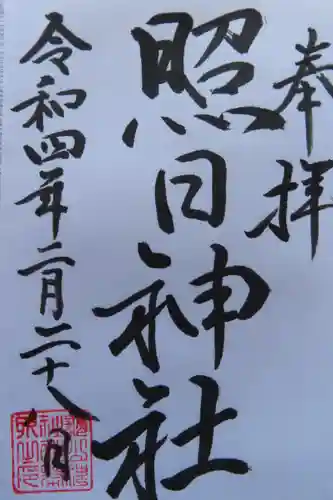 奉拝
照日神社
令和四年二月二十八日